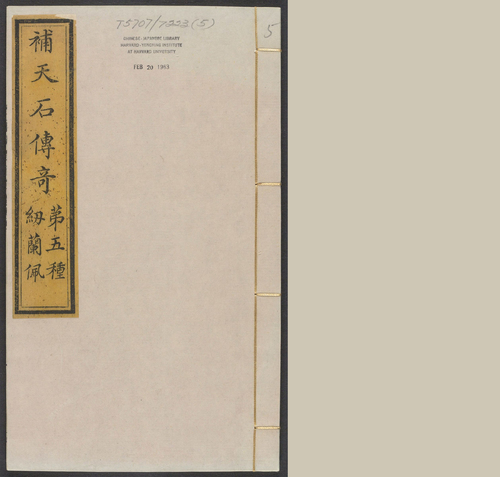 T5707/7223(5)
5
CHINESE-JAPANESE LIBRARY
HARVARD-YENCHING INSTITUTE
AT HARVARD UNIVERSITY
FEB 20 1963
補天石傳奇
第五種
紉蘭佩